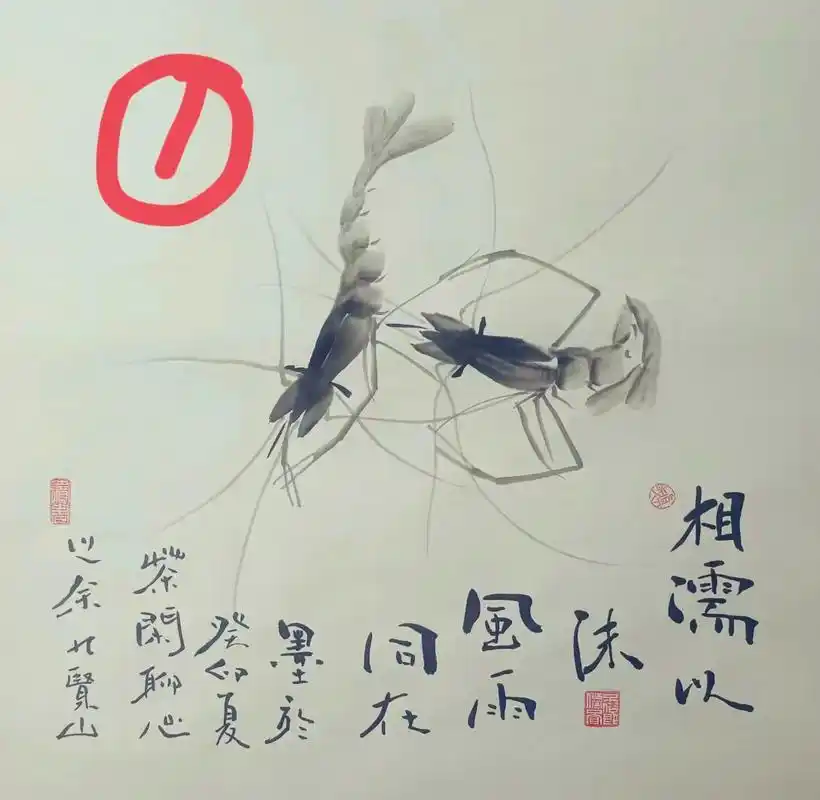 ①
相濡以
沫
風雨
同在
墨於
癸卯夏
茶閑聊心
之余賢山